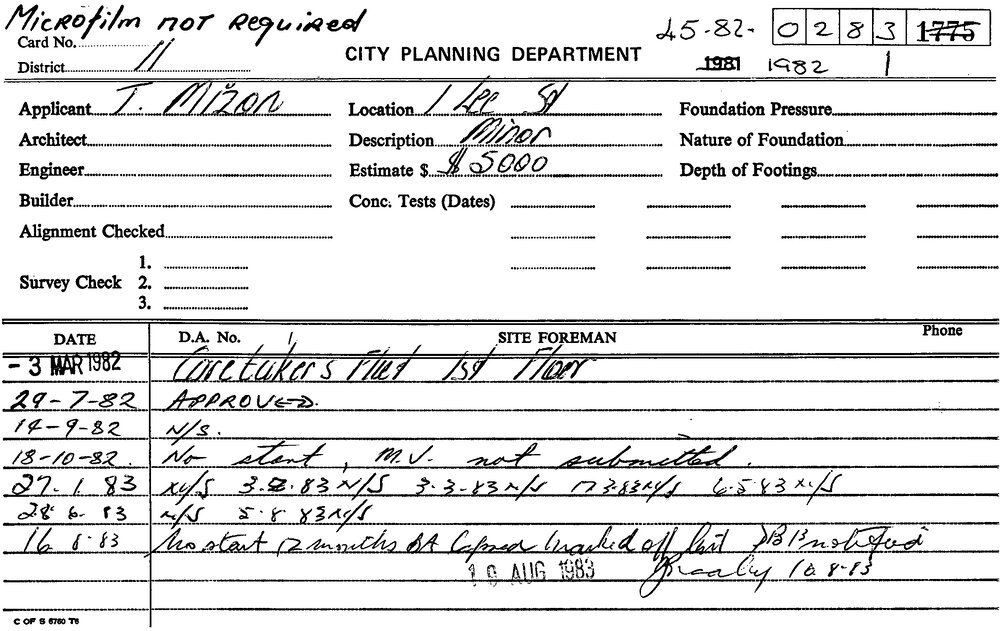 Microfilm not required
45-82- 0283 1775
Card No.
District 11
CITY PLANNING DEPARTMENT
1981 1982 1
Applicant T. Mizon Location 1 Lee St Foundation Pressure
Architect Description Minor Nature of Foundation
Engineer Estimate $ $ 5000 Depth of Footings
Builder Conc. Tests (Dates)
Alignment Checked
Survey Check 1.
2.
3.
DATE D.A. No. SITE FOREMAN Phone
- 3 MAR 1982 Caretakers Flat 1st Floor
29-7-82 APPROVED.
14-9-82 N/S.
18-10-82. No start, M.V. not submitted.
27. 1. 83 N/S 3.2.83 N/S 3-3-83 N/S 17 3 83 N/S 6.5.83 N/S
28 6 83 N/S 5.8.83 N/S
16 8-83 No start 12 months BA lapsed marked off list notified
19 AUG 1983 16 8-83
C OF S 6760 T6